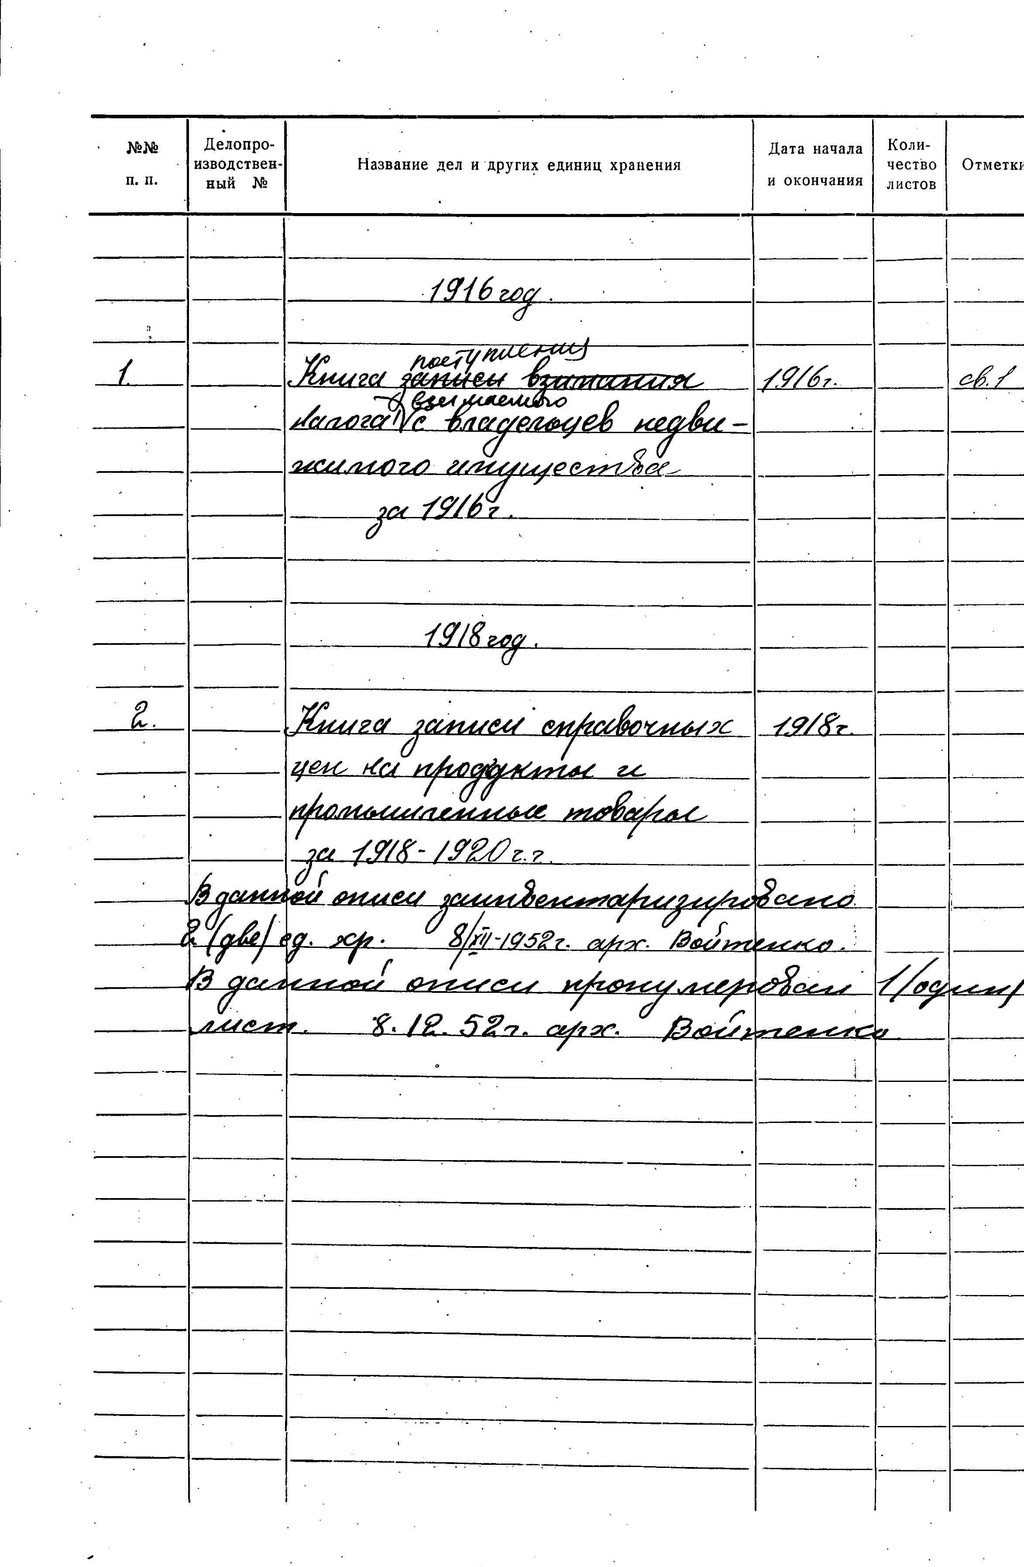 №№ п. п. Делопроизводствен-ный № Название дел и других единиц хранения Дата начала и окончания Количество листов Отметки
1916 год.
поступления
1. Книга записи взимания 1916г. св.1
взимаемого
налога с владельцев недви-
жимого имущества
за 1916г.
1918 год.
2. Книга записи справочных 1918г.
цен на продукты и
промышленные товары
за 1918-1920 г.г.
В данной описи заинвентаризировано
2 (две) ед. хр. 8/XII-1952г. арх. Войтенко.
В данной описи пронумерован 1/один/
лист. 8.12.52г. арх. Войтенко